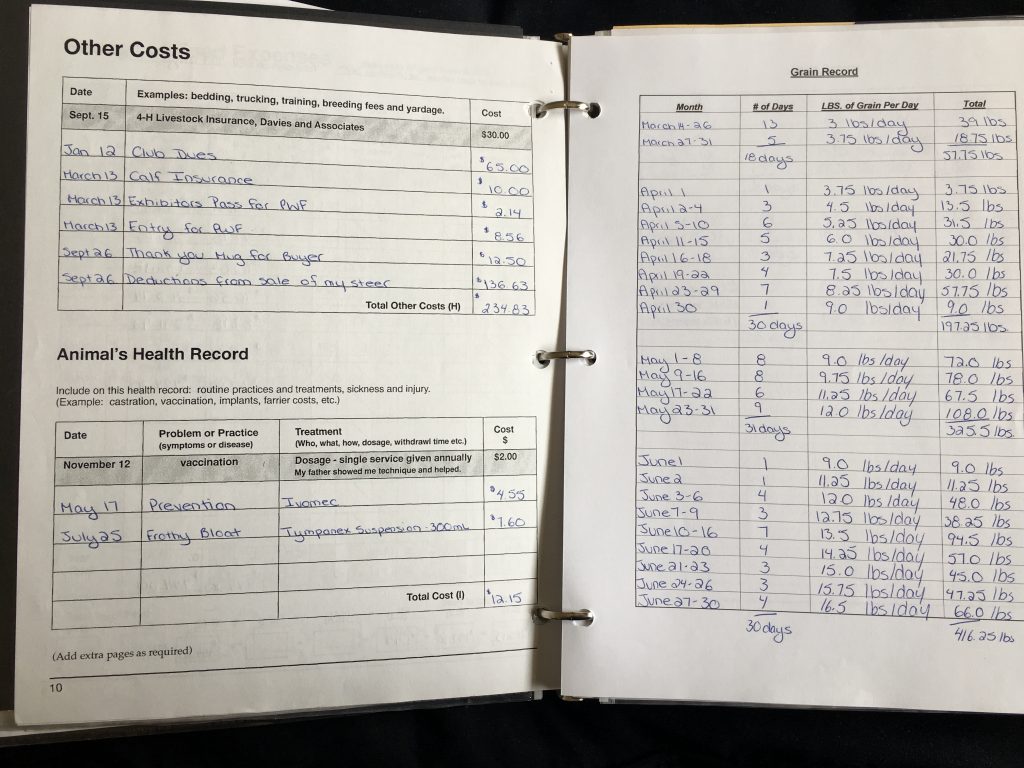 Other Costs
Date Examples: bedding, trucking, training, breeding fees and yardage. Cost
Sept. 15 4-H Livestock Insurance, Davies and Associates $30.00
Jan 12 Club Dues $65.00
March 13 Calf Insurance $10.00
March 13 Exhibitors Pass for PWF $2.14
March 13 Entry for PWF $8.56
Sept 26 Thank you Mug for Buyer $12.50
Sept 26 Deductions from sale of my steer $136.63
Total Other Costs (H) $234.83
Animal's Health Record
Include on this health record: routine practices and treatments, sickness and injury.
(Example: castration, vaccination, implants, farrier costs, etc.)
Date Problem or Practice Treatment Cost
(symptoms or disease) (Who, what, how, dosage, withdrawl time etc.) $
November 12 vaccination Dosage - single service given annually $2.00
My father showed me technique and helped.
May 17 Prevention Ivomec $4.55
July 25 Frothy Bloat Tympanex Suspension - 300mL $7.60
Total Cost (I) $12.15
(Add extra pages as required)
10
Grain Record
Month # of Days LBS. of Grain Per Day Total
March 14-26 13 3 lbs/day 39 lbs
March 27-31 5 3.75 lbs/day 18.75 lbs
18 days 57.75 lbs
April 1 1 3.75 lbs/day 3.75 lbs
April 2-4 3 4.5 lbs/day 13.5 lbs
April 5-10 6 5.25 lbs/day 31.5 lbs
April 11-15 5 6.0 lbs/day 30.0 lbs
April 16-18 3 7.25 lbs/day 21.75 lbs
April 19-22 4 7.5 lbs/day 30.0 lbs
April 23-29 7 8.25 lbs/day 57.75 lbs
April 30 1 9.0 lbs/day 9.0 lbs
30 days 197.25 lbs
May 1-8 8 9.0 lbs/day 72.0 lbs
May 9-16 8 9.75 lbs/day 78.0 lbs
May 17-22 6 11.25 lbs/day 67.5 lbs
May 23-31 9 12.0 lbs/day 108.0 lbs
31 days 325.5 lbs
June 1 1 9.0 lbs/day 9.0 lbs
June 2 1 11.25 lbs/day 11.25 lbs
June 3-6 4 12.0 lbs/day 48.0 lbs
June 7-9 3 12.75 lbs/day 38.25 lbs
June 10-16 7 13.5 lbs/day 94.5 lbs
June 17-20 4 14.25 lbs/day 57.0 lbs
June 21-23 3 15.0 lbs/day 45.0 lbs
June 24-26 3 15.75 lbs/day 47.25 lbs
June 27-30 4 16.5 lbs/day 66.0 lbs
30 days 416.25 lbs